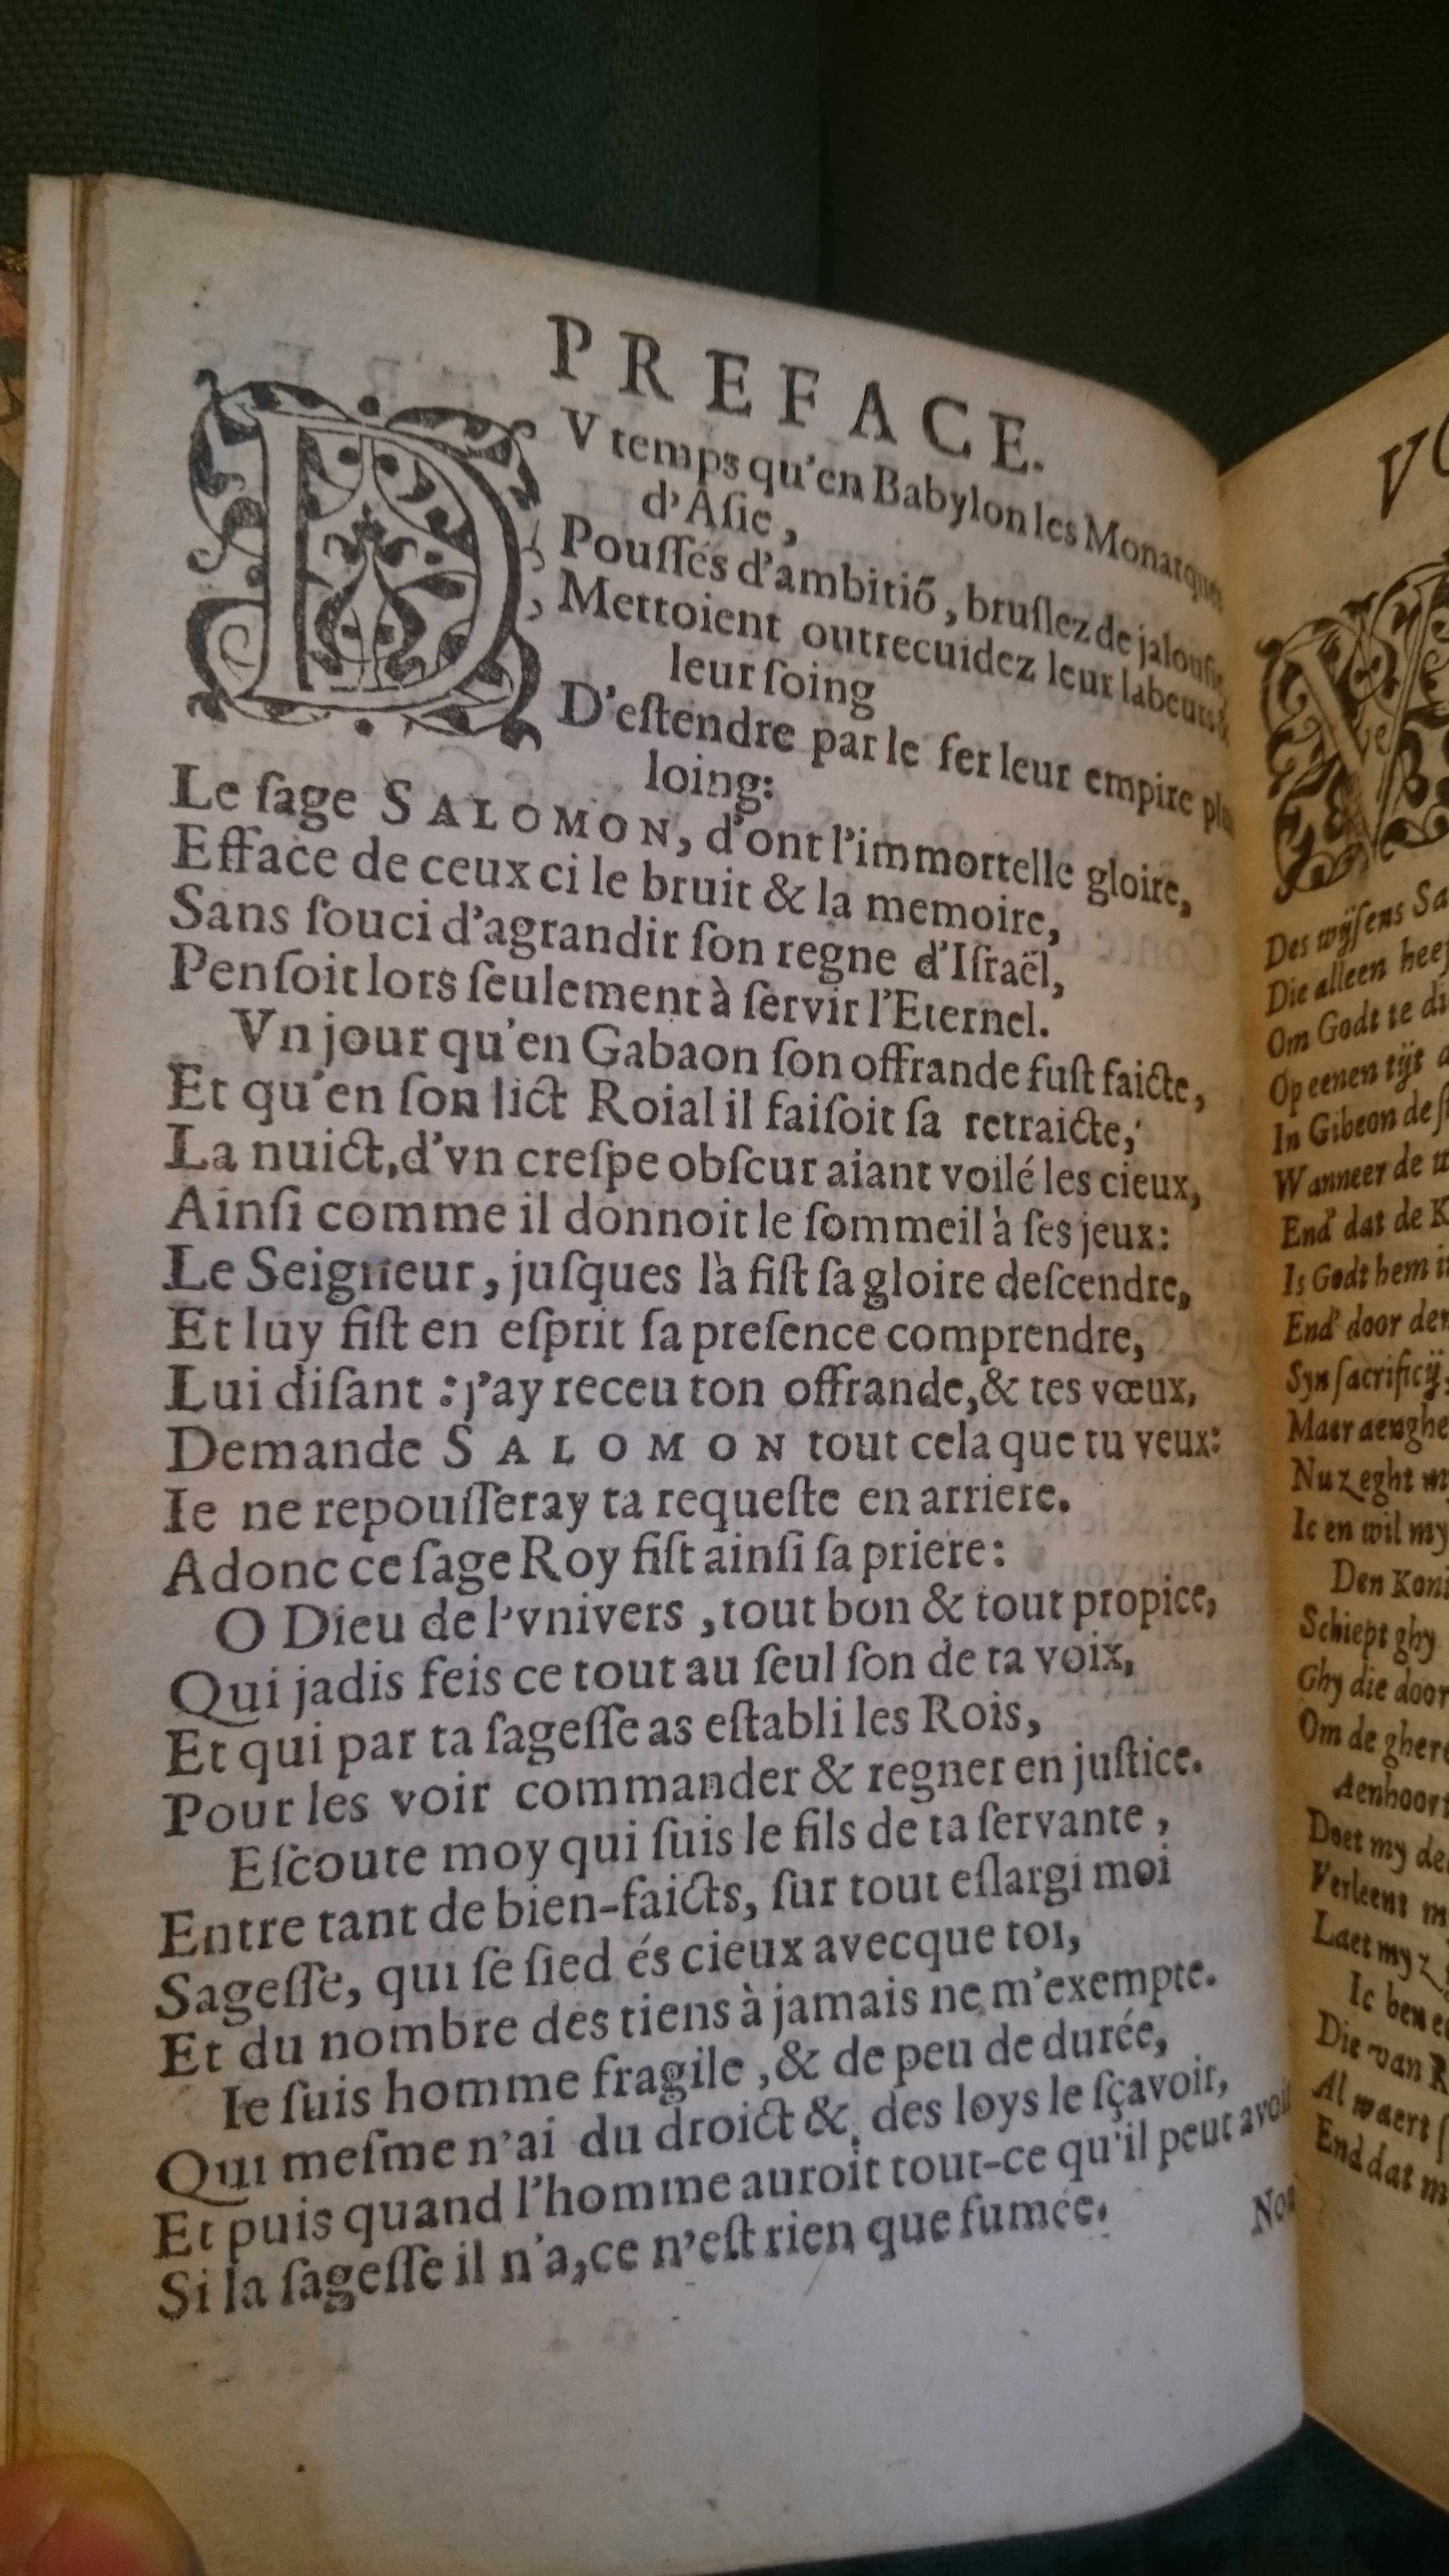 PREFACE.
DV temps qu'en Babylon les Monarques
d'Asie,
Pouſſés d'ambitiõ, bruſlez de jalouſie
Mettoient outrecuidez leur labeurs &
leur ſoing
D'eſtendre par le fer leur empire plus
loing:
Le ſage SALOMON, d'ont l'immortelle gloire,
Efface de ceux ci le bruit & la memoire,
Sans ſouci d'agrandir ſon regne d'Iſraël,
Penſoit lors ſeulement à ſervir l'Eternel.
Vn jour qu'en Gabaon ſon offrande fuſt faicte,
Et qu'en ſon lict Roial il faiſoit ſa retraicte,
La nuict, d'vn creſpe obſcur aiant voilé les cieux,
Ainſi comme il donnoit le ſommeil à ſes jeux:
Le Seigneur, juſques là fiſt ſa gloire deſcendre,
Et luy fiſt en eſprit ſa preſence comprendre,
Lui diſant : j'ay receu ton offrande, & tes vœux,
Demande SALOMON tout cela que tu veux:
Ie ne repouſſeray ta requeſte en arriere.
Adonc ce ſage Roy fiſt ainſi ſa priere:
O Dieu de l'vnivers, tout bon & tout propice,
Qui jadis feis ce tout au ſeul ſon de ta voix,
Et qui par ta ſageſſe as eſtabli les Rois,
Pour les voir commander & regner en juſtice.
Eſcoute moy qui ſuis le fils de ta ſervante,
Entre tant de bien-faicts, ſur tout eſlargi moi
Sageſſe, qui ſe ſied és cieux avecque toi,
Et du nombre des tiens à jamais ne m'exempte.
Ie ſuis homme fragile, & de peu de durée,
Qui meſme n'ai du droict & des loys le ſçavoir,
Et puis quand l'homme auroit tout-ce qu'il peut avoir
Si la ſageſſe il n'a, ce n'eſt rien que fumée.
Des wijſens
Die alleen
Om Godt te
Op eenen tijt
In Gibeon
Wanneer de
End' dat de
Is Godt hem
End' door
Syn ſacrificij
Maer
Nu zeght
Ic en wil my
Den
Schiept ghy
Ghy die door
Om de
Doet my
Verleent
Laet my
Ic ben
Die van
Al waert
End dat